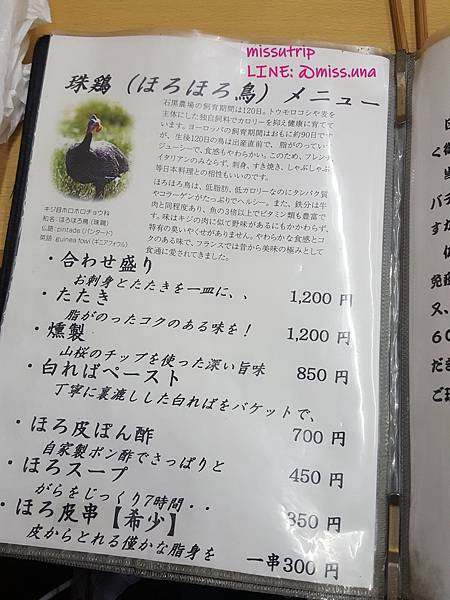 missutrip
LINE: @miss.una
珠鶏（ほろほろ鳥）メニュー
石黒農場の飼育期間は120日。トウモロコシや麦を
主体にした独自飼料でカロリーを抑え健康に育てて
います。ヨーロッパの飼育期間はおもに約90日です
が、生後120日の鳥は出産直前で、脂がのっていて
ジューシーで、食感もやわらかい。このため、フレンチ、
イタリアンのみならず、刺身、すき焼き、しゃぶしゃぶ
等日本料理との相性もいいのです。
ほろほろ鳥は、低脂肪、低カロリーなのにタンパク質
やコラーゲンがたっぷりでヘルシー。また、鉄分は牛
肉と同程度あり、魚の3倍以上でビタミン類も豊富で
す。味はキジの肉に似て野味があるにもかかわらず、
特有の臭いやくせがありません。やわらかな食感とコ
クのある味で、フランスでは昔から美味の極みとして
食通に愛されてきました。
キジ目ホロホロチョウ科
和名：ほろほろ鳥（珠鶏）
仏語：pintade（パンタード）
英語：guinea fowl（ギニアフォウル）
・合わせ盛り
お刺身とたたきを一皿に、、 1,200 円
・たたき
脂がのったコクのある味を！ 1,200 円
・燻製
山桜のチップを使った深い旨味 850 円
・白ればペースト
丁寧に裏漉しした白ればをバケットで、
700 円
・ほろ皮ぽん酢
自家製ポン酢でさっぱりと
450 円
・ほろスープ
がらをじっくり7時間・・
350 円
・ほろ皮串【希少】
皮からとれる僅かな脂身を 一串300 円